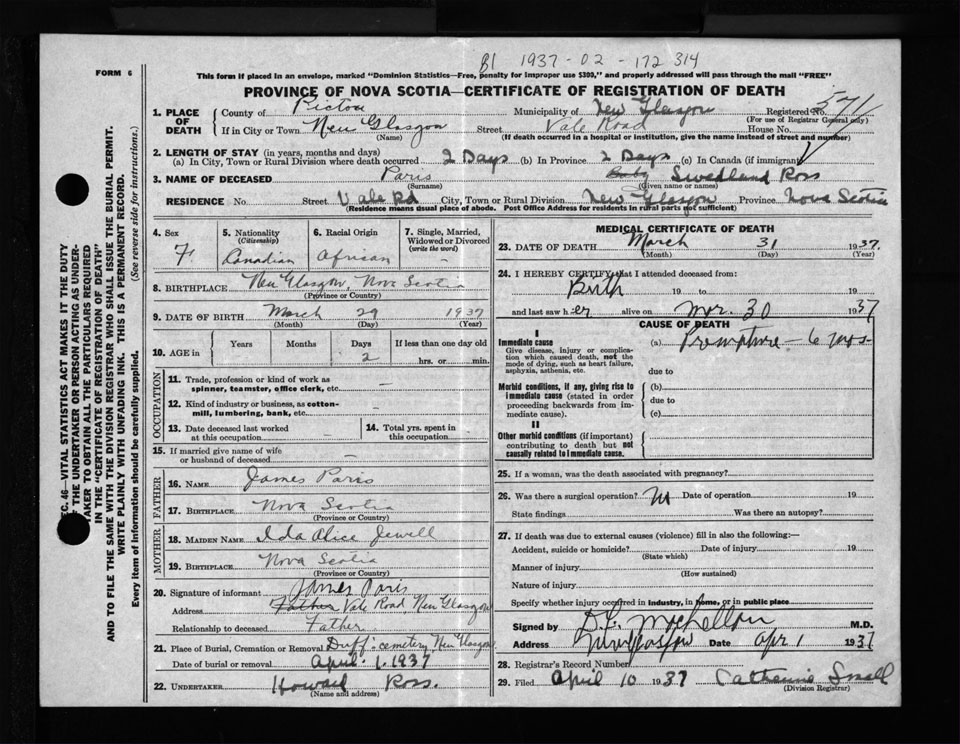 1937 - 02 - 172 314
FORM 6
This form if placed in an envelope, marked "Dominion Statistics—Free, penalty for improper use $300," and properly addressed will pass through the mail "FREE"
PROVINCE OF NOVA SCOTIA—CERTIFICATE OF REGISTRATION OF DEATH
1. PLACE OF DEATH County of Pictou Municipality of New Glasgow Registered No. 571
(For use of Registrar General only)
If in City or Town New Glasgow Street Vale Road House No.
(Name) (If death occurred in a hospital or institution, give the name instead of street and number)
2. LENGTH OF STAY (in years, months and days)
(a) In City, Town or Rural Division where death occurred 2 Days (b) In Province 2 Days (c) In Canada (if immigrant)
3. NAME OF DECEASED Paris Baby Swedland Ross
(Surname) (Given name or names)
RESIDENCE No. Street Vale Rd City, Town or Rural Division New Glasgow Province Nova Scotia
(Residence means usual place of abode. Post Office Address for residents in rural parts not sufficient)
4. Sex F
5. Nationality (Citizenship) Canadian
6. Racial Origin African
7. Single, Married, Widowed or Divorced (write the word) —
8. BIRTHPLACE New Glasgow, Nova Scotia
(Province or Country)
9. DATE OF BIRTH March 29 1937
(Month) (Day) (Year)
10. AGE in Years Months Days If less than one day old
2 hrs. or min.
OCCUPATION
11. Trade, profession or kind of work as spinner, teamster, office clerk, etc. —
12. Kind of industry or business, as cotton-mill, lumbering, bank, etc. —
13. Date deceased last worked at this occupation
14. Total yrs. spent in this occupation
15. If married give name of wife or husband of deceased —
FATHER
16. NAME James Paris
17. BIRTHPLACE Nova Scotia
(Province or Country)
MOTHER
18. MAIDEN NAME Ida Alice Jewell
19. BIRTHPLACE Nova Scotia
(Province or Country)
20. Signature of informant James Paris
Address Father Vale Road New Glasgow
Relationship to deceased Father
21. Place of Burial, Cremation or Removal Duff cemetery New Glasgow
Date of burial or removal April 1. 1937
22. UNDERTAKER Howard Ross.
(Name and address)
MEDICAL CERTIFICATE OF DEATH
23. DATE OF DEATH March 31 1937.
(Month) (Day) (Year)
24. I HEREBY CERTIFY that I attended deceased from:
Birth 19 to 19
and last saw her alive on Mar. 30 1937
CAUSE OF DEATH
I
Immediate cause (a) Premature - 6 mos-
Give disease, injury or complication which caused death, not the mode of dying, such as heart failure, asphyxia, asthenia, etc.
due to
Morbid conditions, if any, giving rise to immediate cause (stated in order proceeding backwards from immediate cause).
(b)
due to
(c)
II
Other morbid conditions (if important) contributing to death but not causally related to immediate cause.
25. If a woman, was the death associated with pregnancy?
26. Was there a surgical operation? Date of operation 19
State findings Was there an autopsy?
27. If death was due to external causes (violence) fill in also the following:—
Accident, suicide or homicide? Date of injury 19
(State which)
Manner of injury
(How sustained)
Nature of injury
Specify whether injury occurred in industry, in home, or in public place
Signed by M.D.
Address New Glasgow Date Apr 1 1937
28. Registrar's Record Number
29. Filed April 10 1937 Catherine Small
(Division Registrar)
SEC. 46—VITAL STATISTICS ACT MAKES IT THE DUTY
OF THE UNDERTAKER OR PERSON ACTING AS UNDER-
TAKER TO OBTAIN ALL THE PARTICULARS REQUIRED
IN THE "CERTIFICATE OF REGISTRATION OF DEATH"
AND TO FILE THE SAME WITH THE DIVISION REGISTRAR WHO SHALL ISSUE THE BURIAL PERMIT.
WRITE PLAINLY WITH UNFADING INK. THIS IS A PERMANENT RECORD.
Every item of information should be carefully supplied. (See reverse side for instructions.)